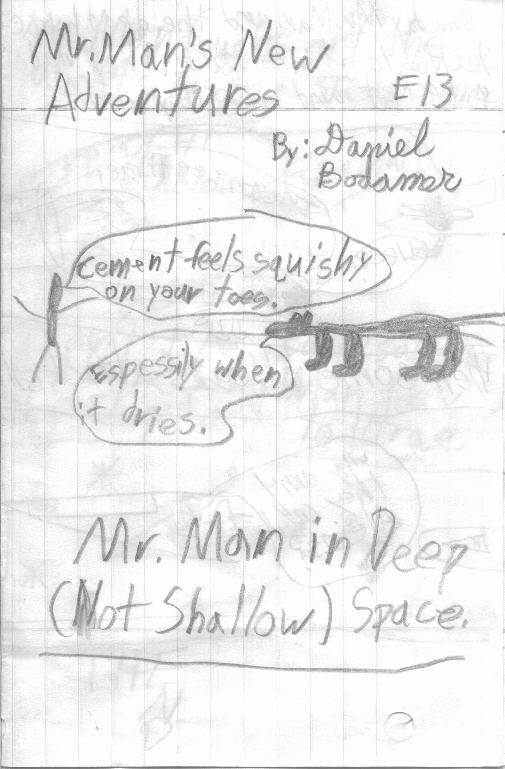 Mr. Man's New
Adventures
E13
By: Daniel
Bodamer
cement feels squishy
on your toes.
espessily when
it dries.
Mr. Man in Deep
(Not Shallow) Space.